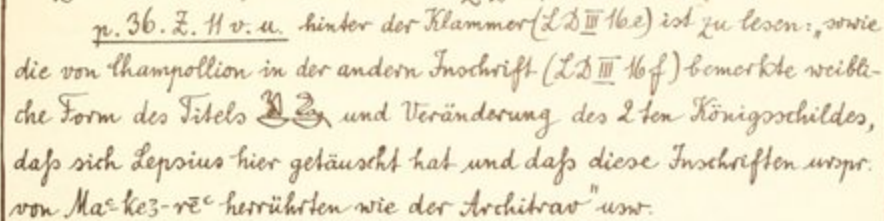 p. 36. Z. 11 v. u. hinter der Klammer (LD III 16e) ist zu lesen: „sowie
die von Champollion in der andern Inschrift (LD III 16f) bemerkte weibli-
che Form des Titels und Veränderung des 2ten Königsschildes,
daß sich Lepsius hier getäuscht hat und daß diese Inschriften urspr.
von Maꜥ-ke3-rēꜥ herrührten wie der Architrav" usw.